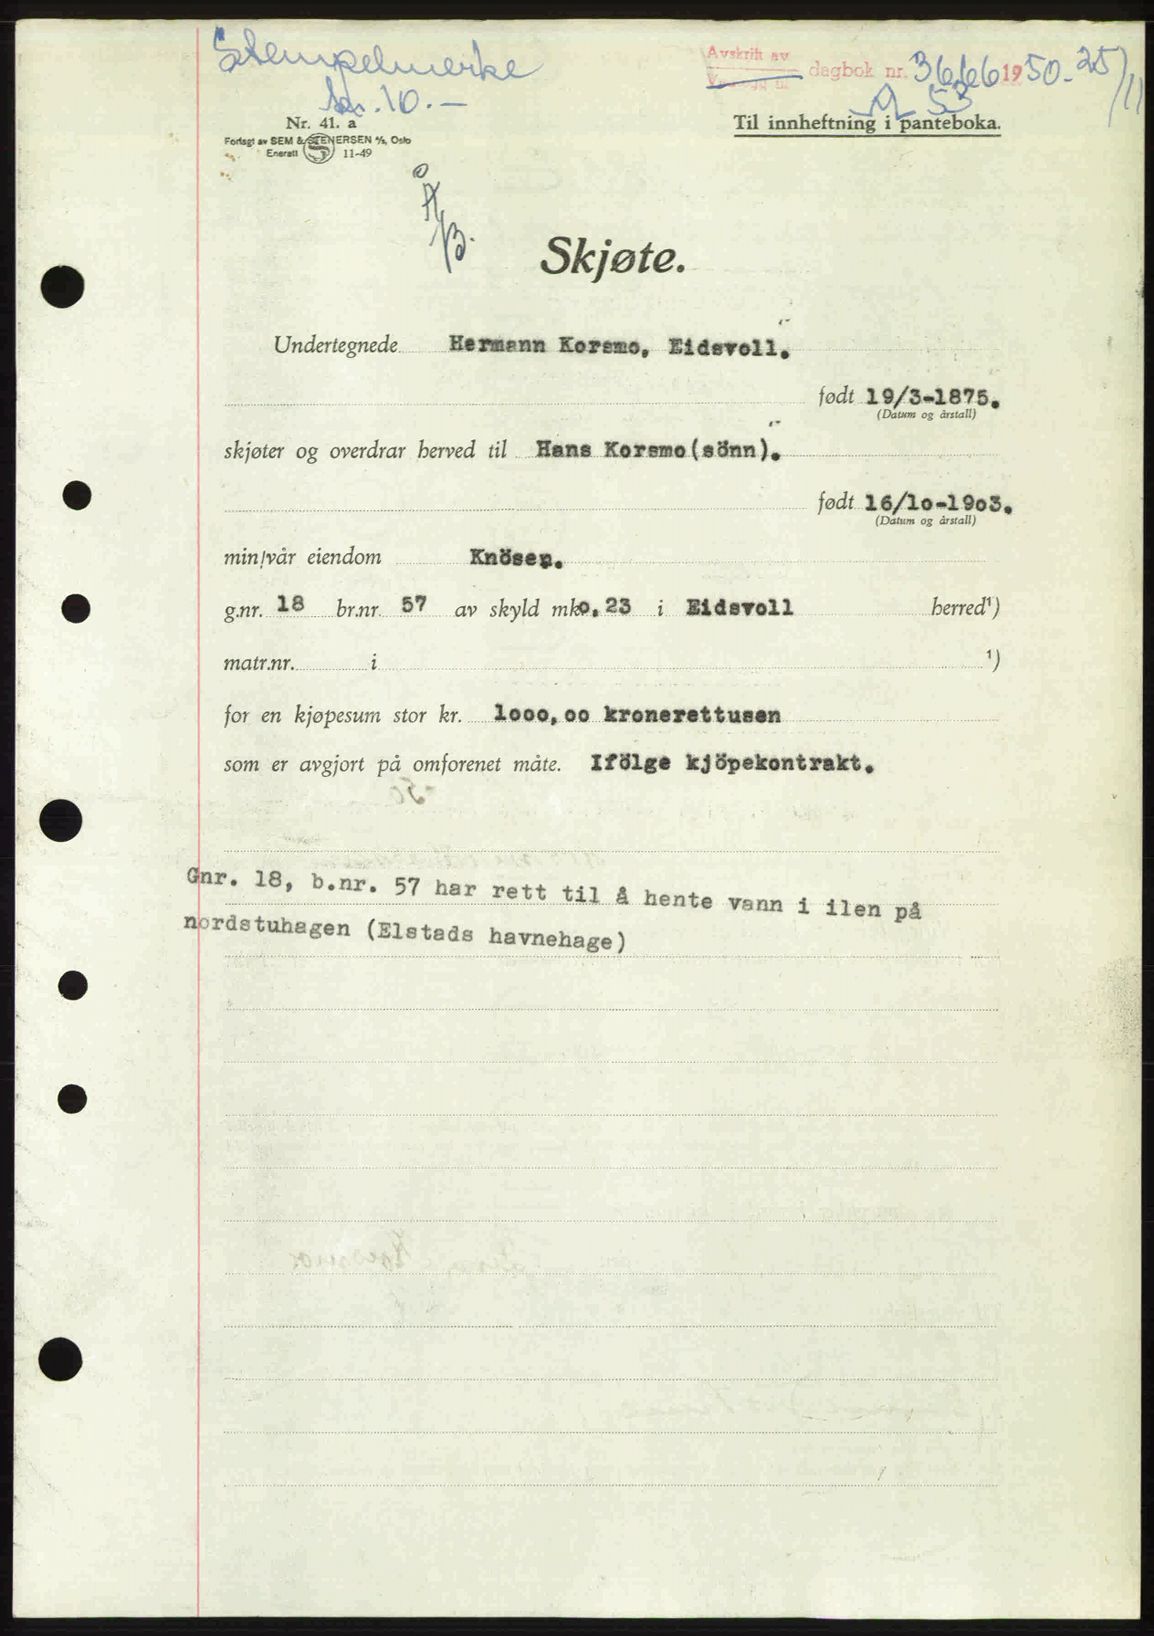 Stempelmerke
kr. 10.-
Avskrift av
dagbok nr. 3666 1950 - 25/11
53
Nr. 41. a
Til innheftning i panteboka.
Forlagt av SEM & STENERSEN A/S, Oslo
Enerett 11-49
Å/B.
Skjøte.
Undertegnede Hermann Korsmo, Eidsvoll.
født 19/3-1875.
(Datum og årstall)
skjøter og overdrar herved til Hans Korsmo(sönn).
født 16/1o-19o3.
(Datum og årstall)
min/vår eiendom Knösen.
g.nr. 18 br.nr. 57 av skyld mk o,23 i Eidsvoll herred¹)
matr.nr. i ¹)
for en kjøpesum stor kr. 1ooo,oo kronerettusen
som er avgjort på omforenet måte. Ifölge kjöpekontrakt.
Gnr. 18, b.nr. 57 har rett til å hente vann i ilen på
nordstuhagen (Elstads havnehage)